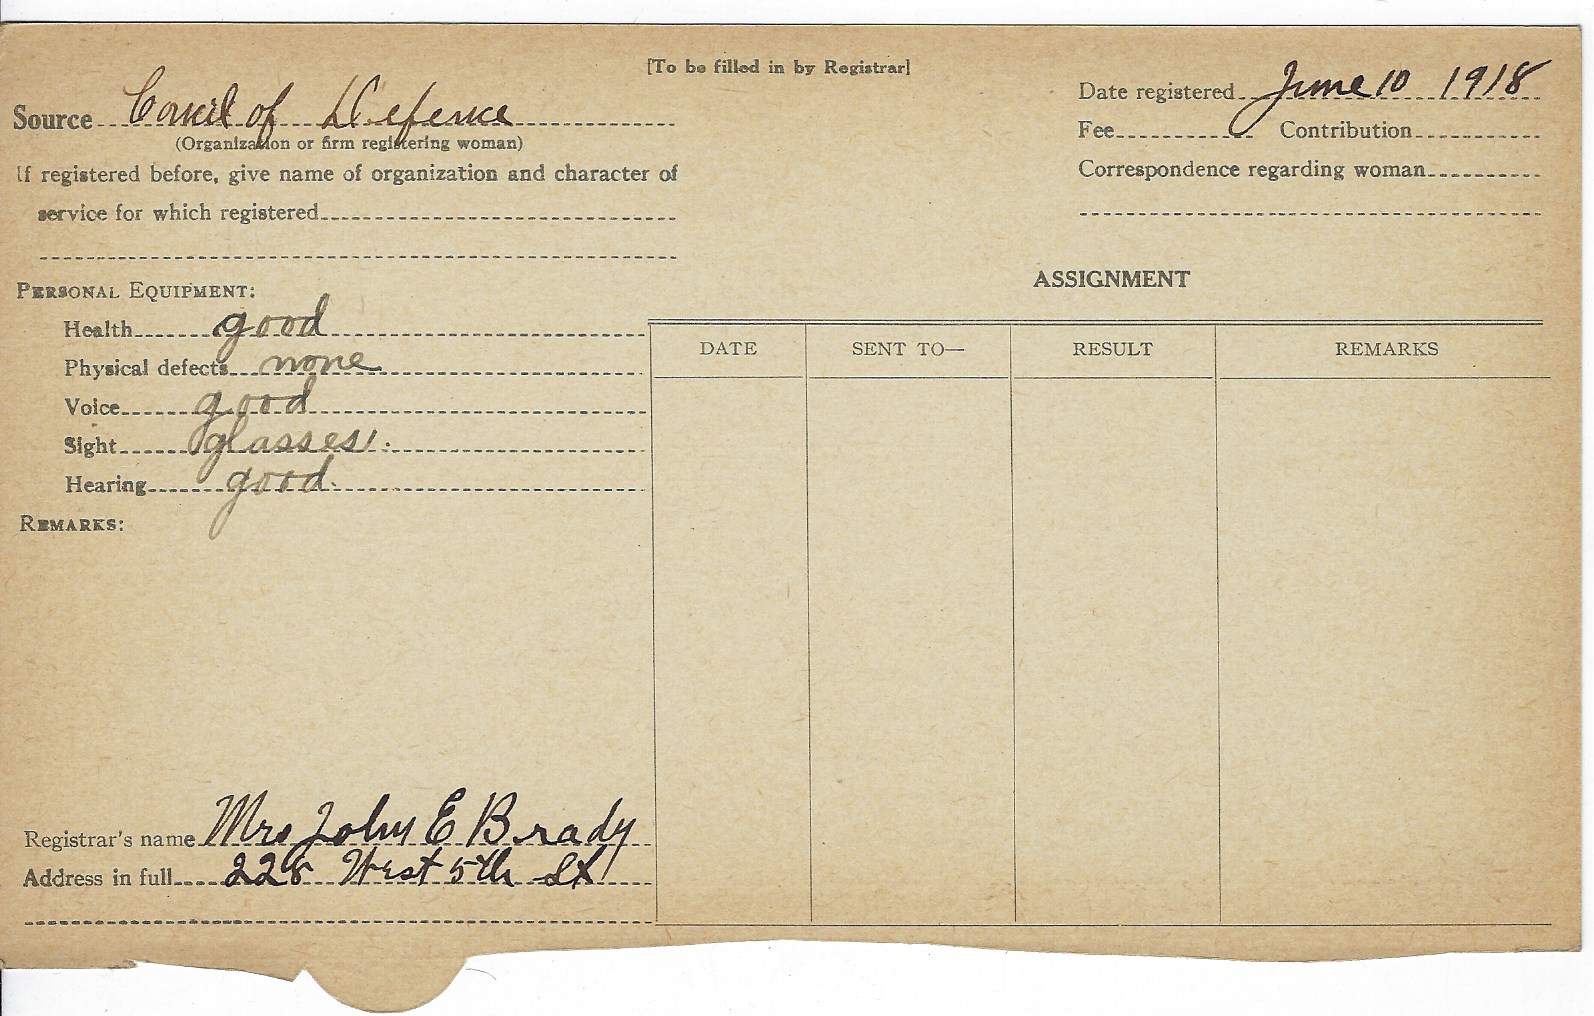 [To be filled in by Registrar]
Source Council of Defence
(Organization or firm registering woman)
If registered before, give name of organization and character of
service for which registered
Date registered June 10 1918
Fee Contribution
Correspondence regarding woman
PERSONAL EQUIPMENT:
Health good
Physical defects none
Voice good
Sight glasses.
Hearing good.
REMARKS:
ASSIGNMENT
DATE SENT TO— RESULT REMARKS
Registrar's name Mrs John E Brady
Address in full 228 West 5th St